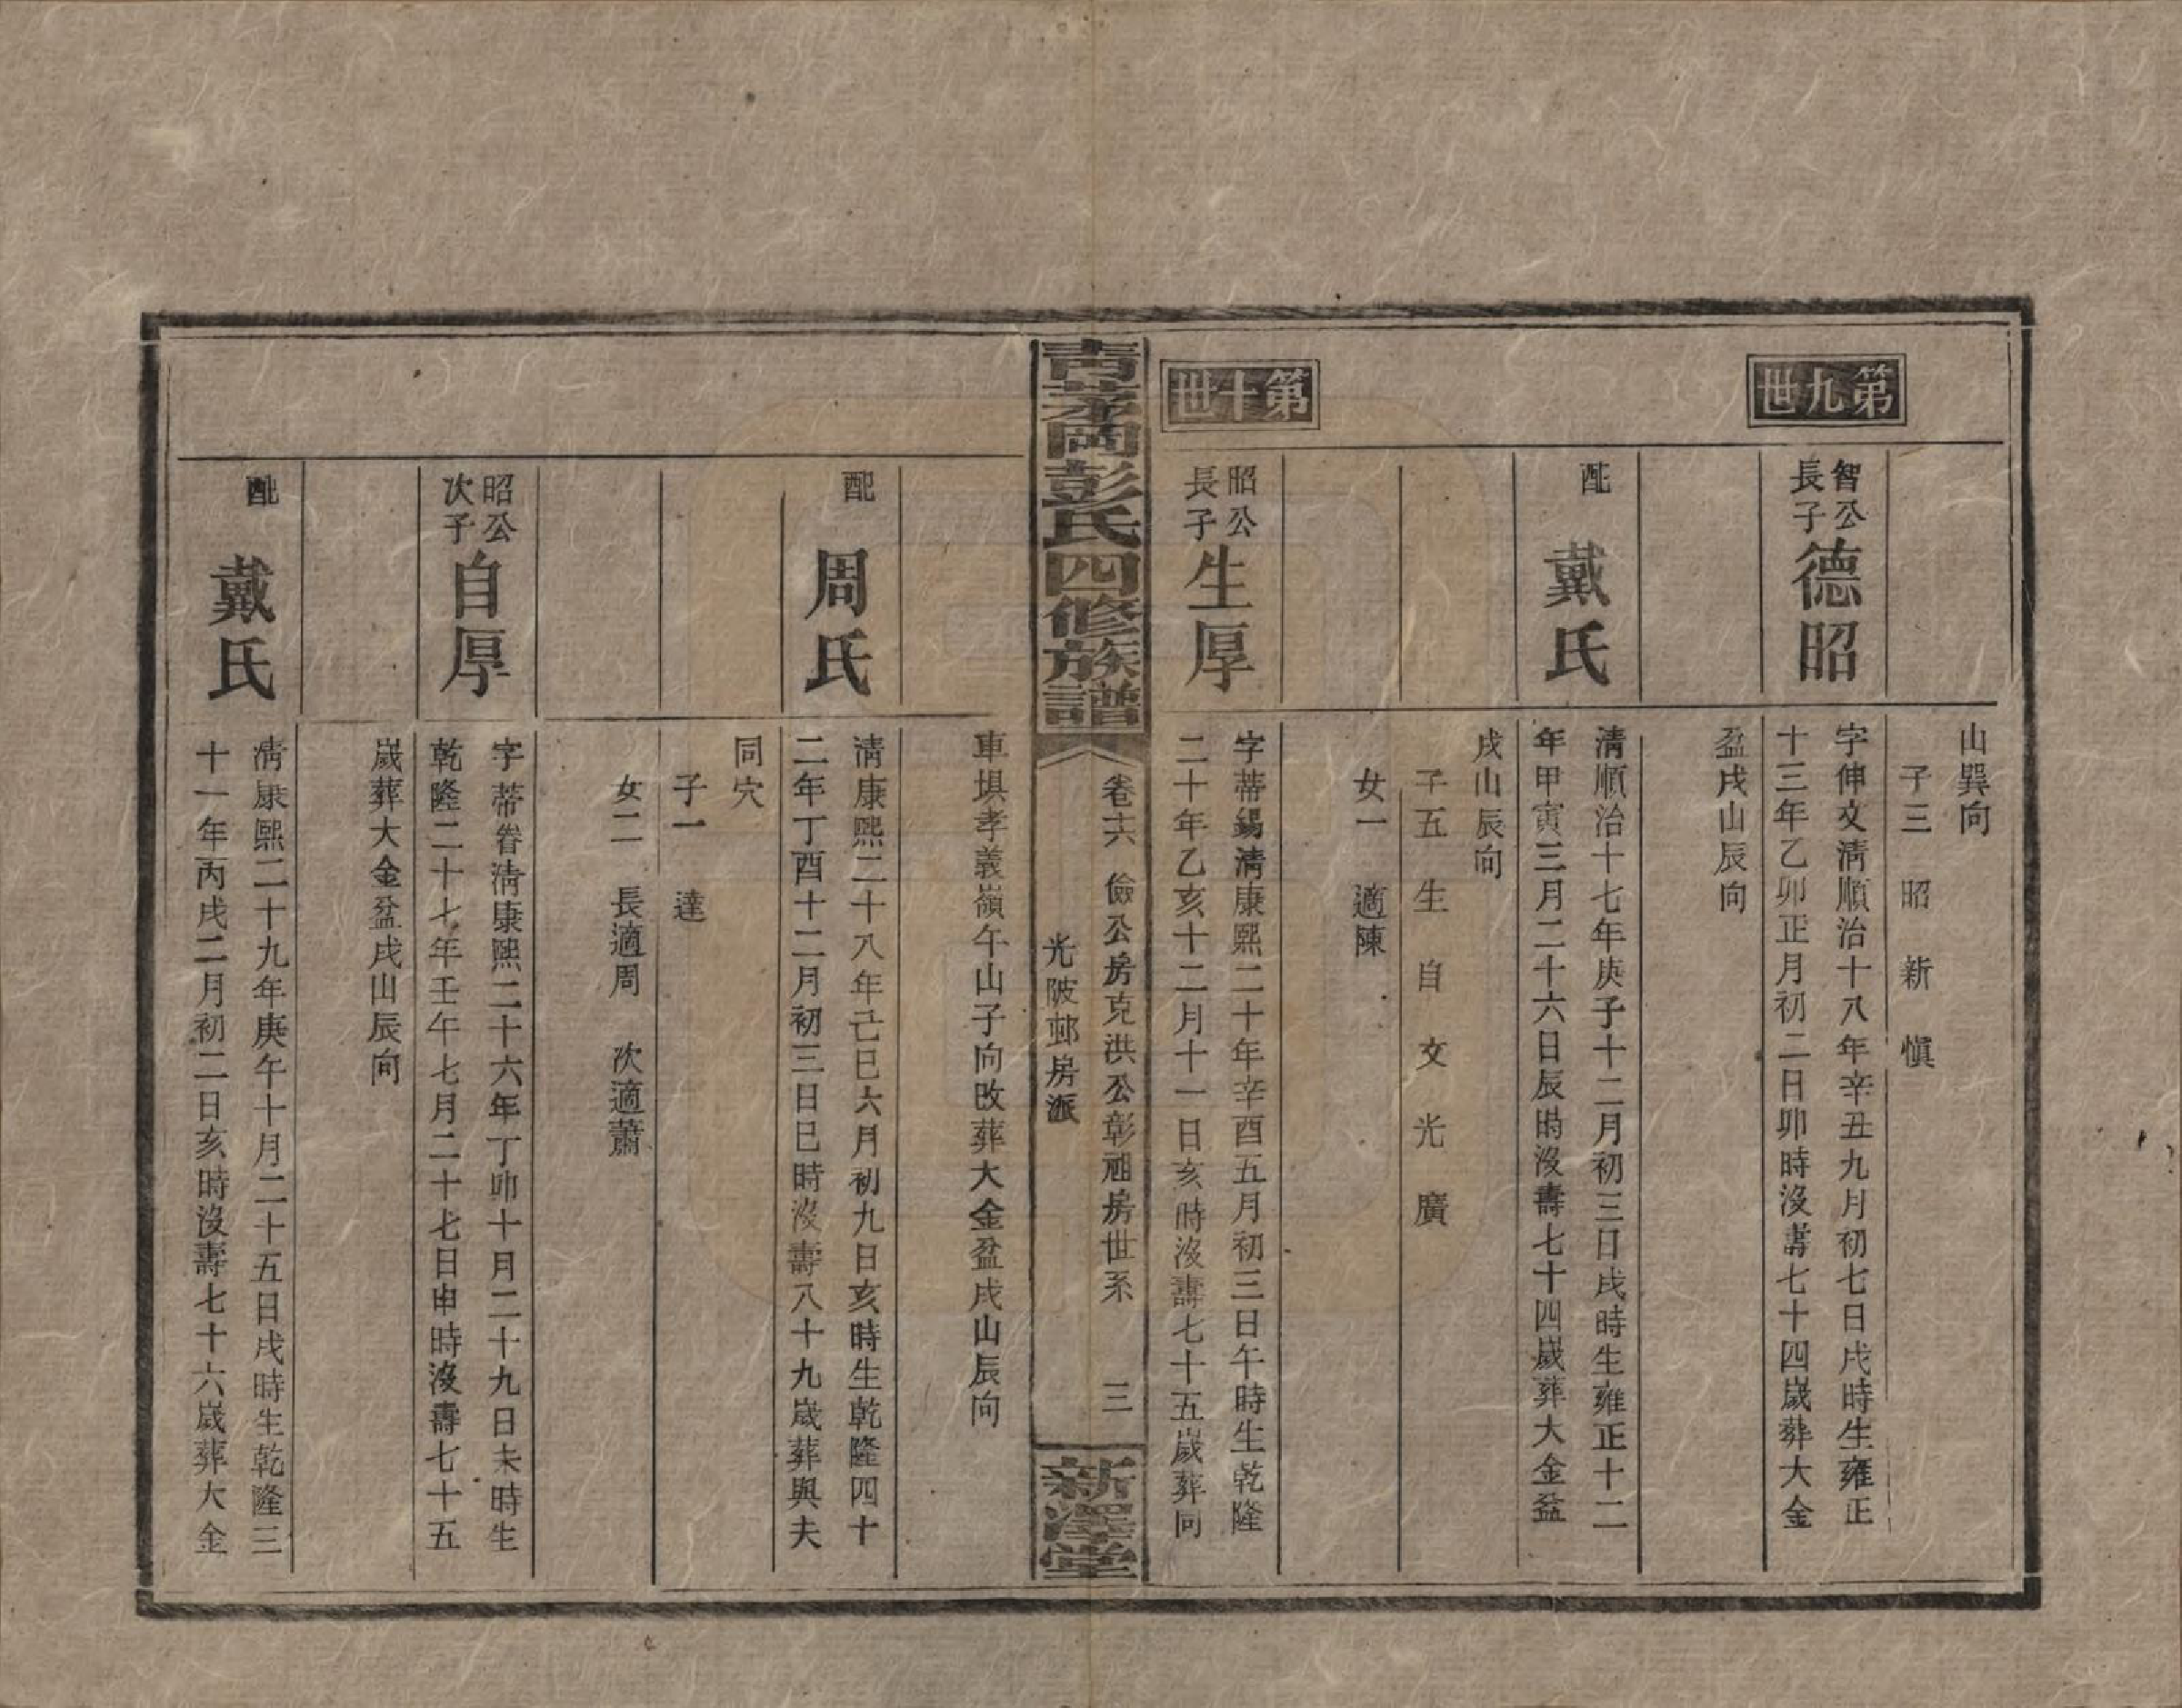 第九世
山巽向
子三　昭　新　愼
智公長子　德昭
字伸文清順治十八年辛丑九月初七日戌時生雍正
十三年乙卯正月初二日卯時沒壽七十四歲葬大金
盆戌山辰向
配　戴氏
清順治十七年庚子十二月初三日戌時生雍正十二
年甲寅三月二十六日辰時沒壽七十四歲葬大金盆
戌山辰向
子五　生　自　文　光　廣
女一　適陳
第十世
昭公長子　生厚
字蒂錫清康熙二十年辛酉五月初三日午時生乾隆
二十年乙亥十二月十一日亥時沒壽七十五歲葬同
青茅岡彭氏四修族譜
卷六　儉公房克洪公彰祖房世系　三
光陂邨房派
新澤堂
車垻孝義嶺午山子向改葬大金盆戌山辰向
配　周氏
清康熙二十八年己巳六月初九日亥時生乾隆四十
二年丁酉十二月初三日巳時沒壽八十九歲葬與夫
同穴
子一　達
女二　長適周　次適蕭
昭公次子　自厚
字蒂眷清康熙二十六年丁卯十月二十九日未時生
乾隆二十七年壬午七月二十七日申時沒壽七十五
歲葬大金盆戌山辰向
配　戴氏
清康熙二十九年庚午十月二十五日戌時生乾隆三
十一年丙戌二月初二日亥時沒壽七十六歲葬大金